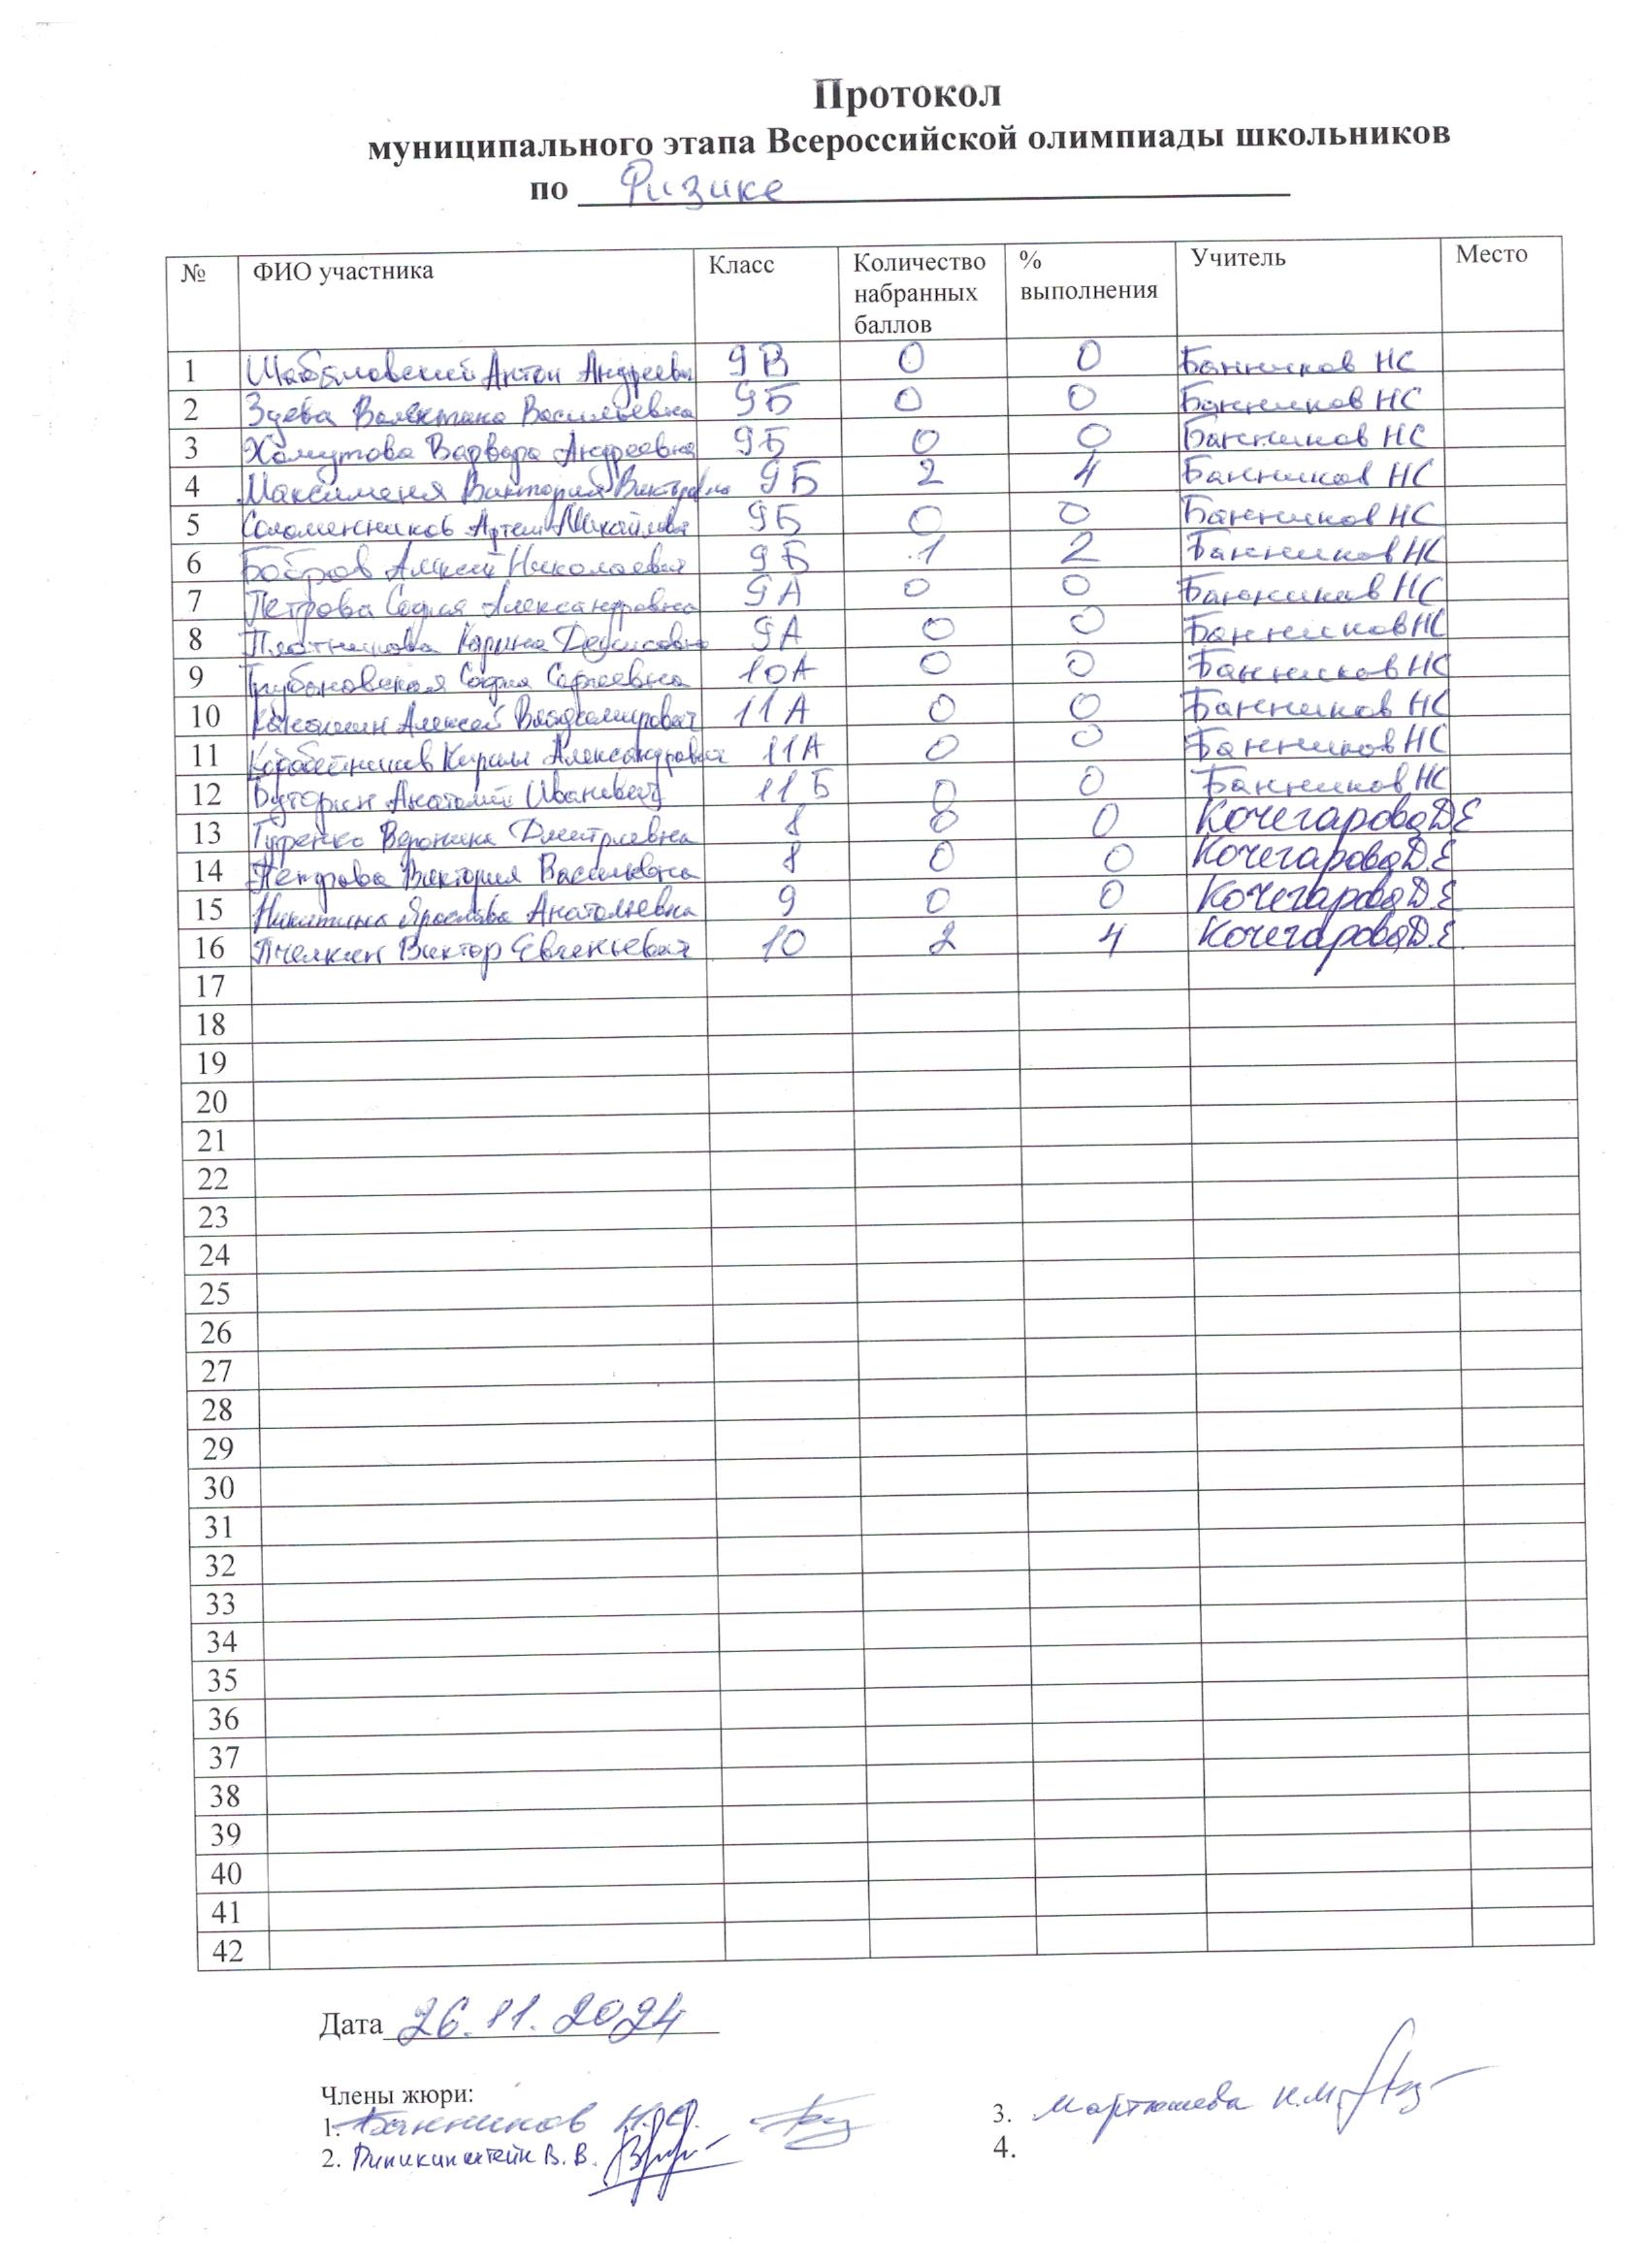 Протокол
муниципального этапа Всероссийской олимпиады школьников
по Физике
№ ФИО участника Класс Количество набранных баллов % выполнения Учитель Место
1 Шабаловский Антон Андреевич 9В 0 0 Банников НС
2 Зуева Васильевна 9Б 0 0 Банников НС
3 Хомутова Варвара Андреевна 9Б 0 0 Банников НС
4 Максименя Виктория Викторовна 9Б 2 4 Банников НС
5 Соломенников Артем Михайлович 9Б 0 0 Банников НС
6 Бобров Алексей Николаевич 9Б 1 2 Банников НС
7 Петрова София Александровна 9А 0 0 Банников НС
8 Плотникова Карина Денисовна 9А 0 0 Банников НС
9 София Сергеевна 10А 0 0 Банников НС
10 Алексей Владимирович 11А 0 0 Банников НС
11 Кирилл Александрович 11А 0 0 Банников НС
12 Буторин Анатолий Иванович 11Б 0 0 Банников НС
13 Гуренко Вероника Дмитриевна 8 0 0 Кочегарова Д.Е
14 Петрова Виктория Васильевна 8 0 0 Кочегарова Д.Е
15 Никитина Ярослава Анатольевна 9 0 0 Кочегарова Д.Е
16 Пчелкин Виктор Евгеньевич 10 2 4 Кочегарова Д.Е.
17
18
19
20
21
22
23
24
25
26
27
28
29
30
31
32
33
34
35
36
37
38
39
40
41
42
Дата 26.11.2024
Члены жюри:
1. Банников Н.С.
2. В.В.
3. Мартюшева Н.М.
4.